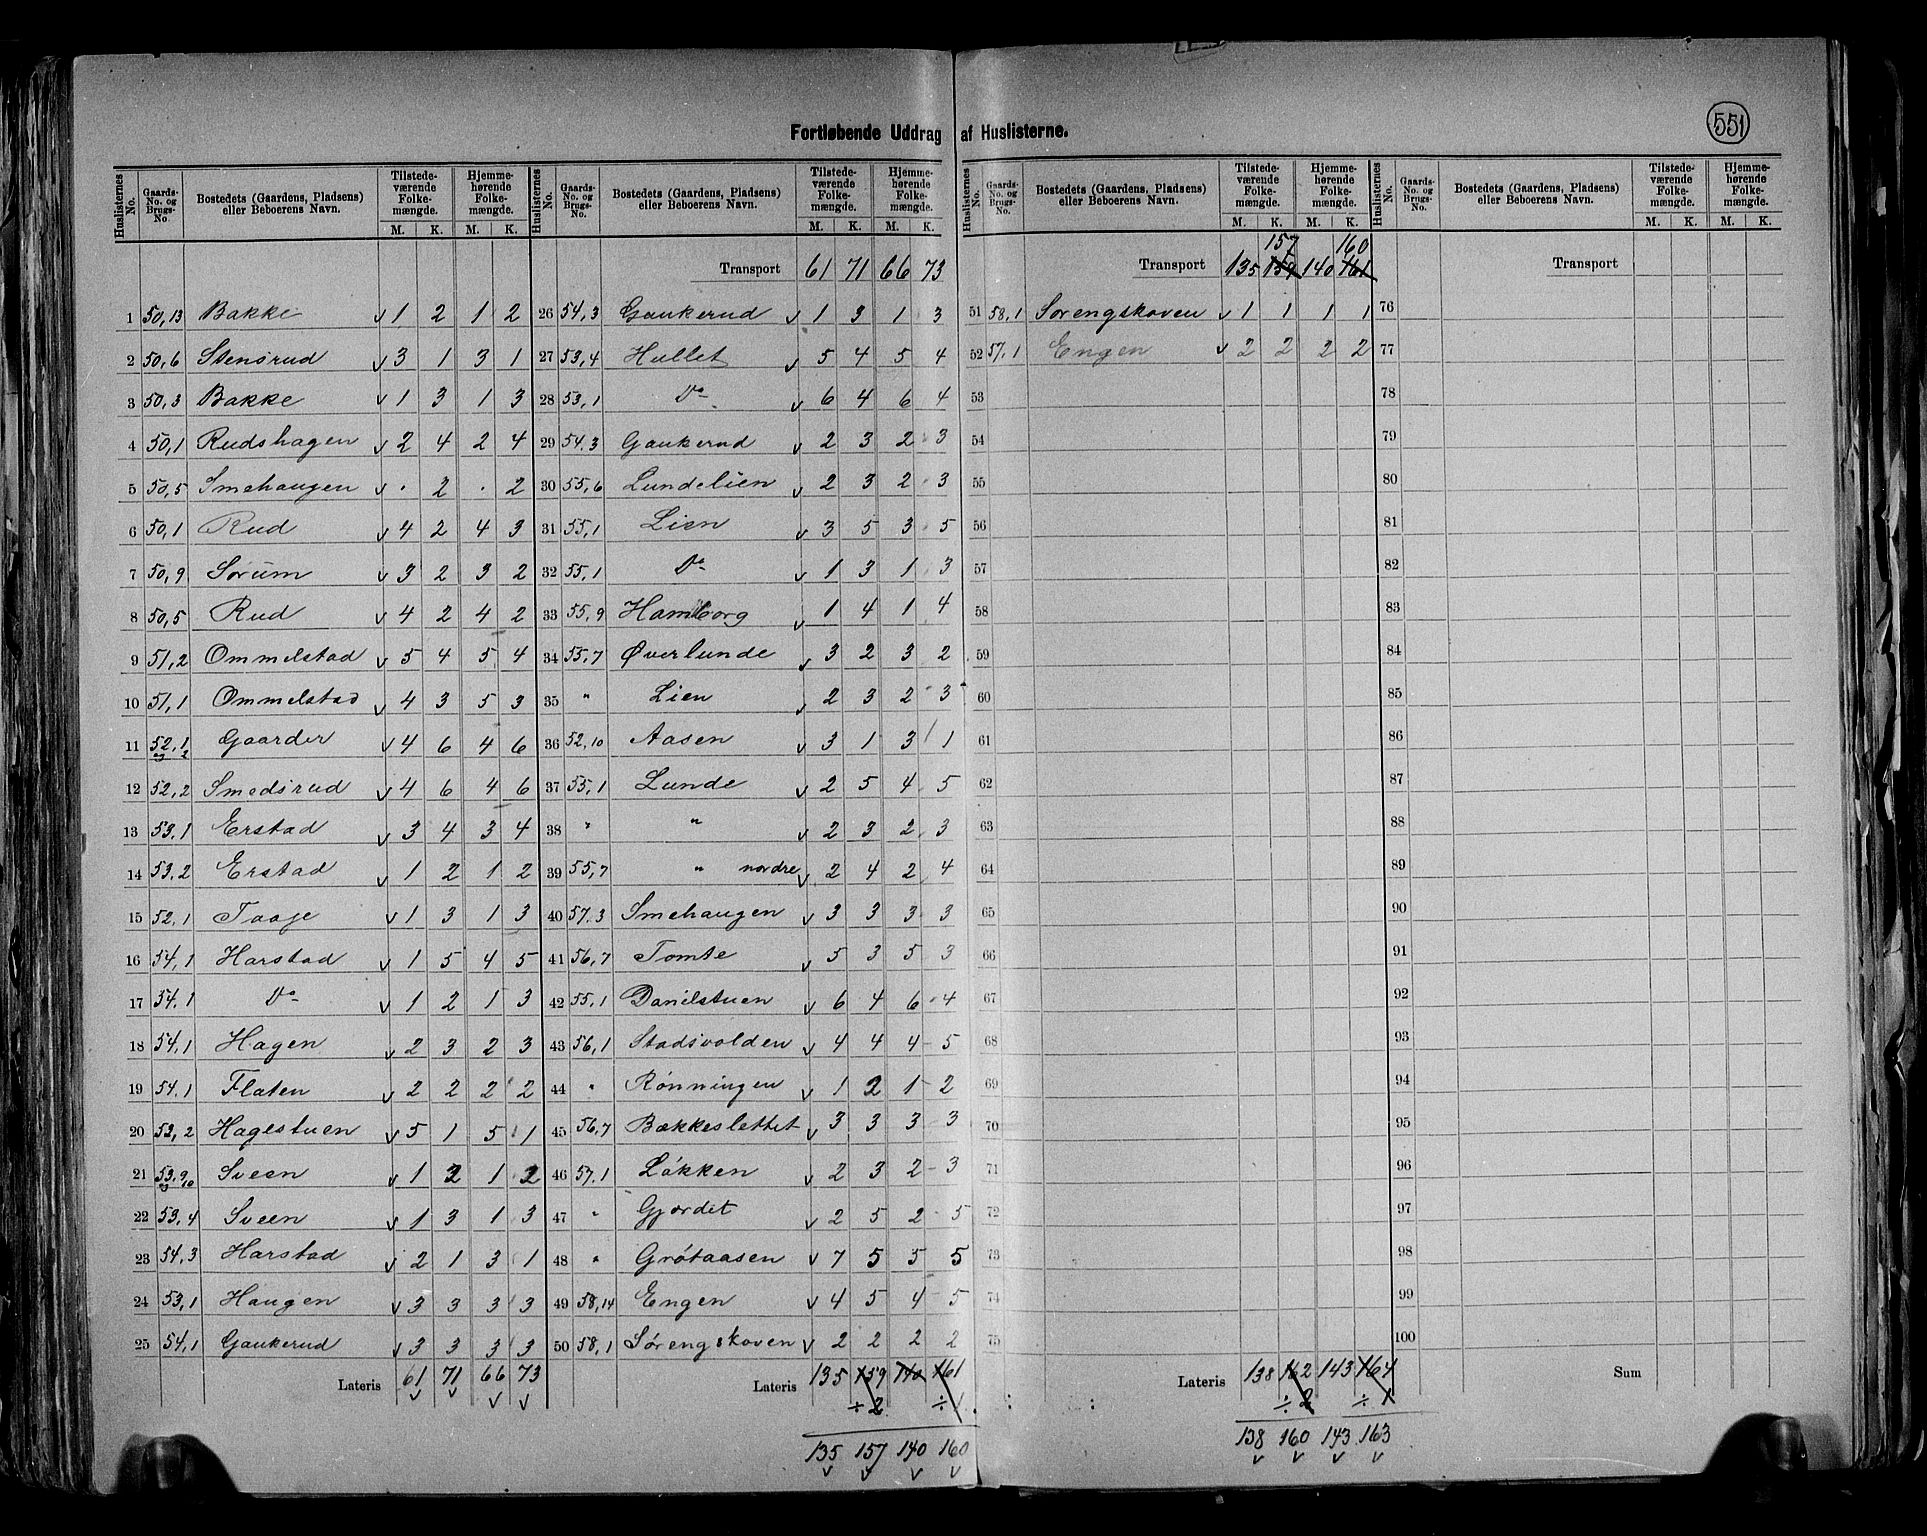 551
Fortløbende Uddrag af Huslisterne.
Huslisternes No. | Gaards-No. og Brugs-No. | Bostedets (Gaardens, Pladsens) eller Beboerens Navn. | Tilstedeværende Folkemængde. M. K. | Hjemmehørende Folkemængde. M. K.
1 50,13 Bakke v 1 2 1 2
2 50,6 Stensrud v 3 1 3 1
3 50,3 Bakke v 1 3 1 3
4 50,1 Rudshagen v 2 4 2 4
5 50,5 Smehaugen v . 2 . 2
6 50,1 Rud v 4 2 4 3
7 50,9 Sørum v 3 2 3 2
8 50,5 Rud v 4 2 4 2
9 51,2 Ommelstad v 5 4 5 4
10 51,1 Ommelstad v 4 3 5 3
11 52,1 og 2 Gaarder v 4 6 4 6
12 52,2 Smedsrud v 4 6 4 6
13 53,1 Erstad v 3 4 3 4
14 53,2 Erstad v 1 2 1 2
15 52,1 Taaje v 1 3 1 3
16 54,1 Harstad v 1 5 4 5
17 54,1 Do v 1 2 1 3
18 54,1 Hagen v 2 3 2 3
19 54,1 Flaten v 2 2 2 2
20 53,2 Hagestuen v 5 1 5 1
21 53,9 og 10 Sveen v 1 2 1 2
22 53,4 Sveen v 1 3 1 3
23 54,3 Harstad v 2 1 3 1
24 53,1 Haugen v 3 3 3 3
25 54,1 Gaukerud v 3 3 3 3
Lateris 61 71 66 73
Huslisternes No. | Gaards-No. og Brugs-No. | Bostedets (Gaardens, Pladsens) eller Beboerens Navn. | Tilstedeværende Folkemængde. M. K. | Hjemmehørende Folkemængde. M. K.
Transport 61 71 66 73
26 54,3 Gaukerud v 1 3 1 3
27 53,4 Hullet v 5 4 5 4
28 53,1 Do v 6 4 6 4
29 54,3 Gaukerud v 2 3 2 3
30 55,6 Lundelien v 2 3 2 3
31 55,1 Lien v 3 5 3 5
32 55,1 Do v 1 3 1 3
33 55,9 Hamborg v 1 4 1 4
34 55,7 Øverlunde v 3 2 3 2
35 " Lien v 2 3 2 3
36 52,10 Aasen v 3 1 3 1
37 55,1 Lunde v 2 5 4 5
38 " " v 2 3 2 3
39 55,7 " nordre v 2 4 2 4
40 57,3 Smehaugen v 3 3 3 3
41 56,7 Tomte v 5 3 5 3
42 55,1 Danielstuen v 6 4 6 4
43 56,1 Stadsvolden v 4 4 4 5
44 " Rønningen v 1 2 1 2
45 56,7 Bækkeslettet v 3 3 3 3
46 57,1 Løkken v 2 3 2 3
47 " Gjordet v 2 5 2 5
48 " Grøtaasen v 7 5 5 5
49 58,14 Engen v 4 5 4 5
50 58,1 Sørengskoven v 2 2 2 2
Lateris 135 159 140 161
÷ 2 ÷ 1
135 157 140 160
Huslisternes No. | Gaards-No. og Brugs-No. | Bostedets (Gaardens, Pladsens) eller Beboerens Navn. | Tilstedeværende Folkemængde. M. K. | Hjemmehørende Folkemængde. M. K.
157 160
Transport 135 159 140 161
51 58,1 Sørengskoven v 1 1 1 1
52 57,1 Engen v 2 2 2 2
53
54
55
56
57
58
59
60
61
62
63
64
65
66
67
68
69
70
71
72
73
74
75
Lateris 138 162 143 164
÷ 2 ÷ 1
138 160 143 163
Huslisternes No. | Gaards-No. og Brugs-No. | Bostedets (Gaardens, Pladsens) eller Beboerens Navn. | Tilstedeværende Folkemængde. M. K. | Hjemmehørende Folkemængde. M. K.
Transport
76
77
78
79
80
81
82
83
84
85
86
87
88
89
90
91
92
93
94
95
96
97
98
99
100
Sum